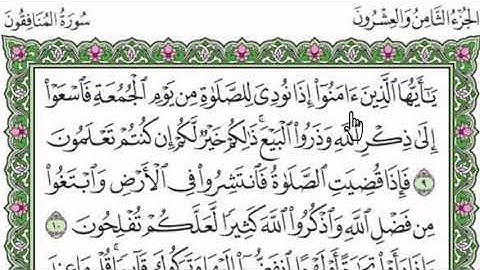 الجُزْءُ الثَّامِنُ وَالعِشْرُونَ
سُورَةُ المُنَافِقُونَ
يَٰٓأَيُّهَا ٱلَّذِينَ ءَامَنُوٓا۟ إِذَا نُودِىَ لِلصَّلَوٰةِ مِن يَوْمِ ٱلْجُمُعَةِ فَٱسْعَوْا۟
إِلَىٰ ذِكْرِ ٱللَّهِ وَذَرُوا۟ ٱلْبَيْعَ ۚ ذَٰلِكُمْ خَيْرٌ لَّكُمْ إِن كُنتُمْ تَعْلَمُونَ
٩ فَإِذَا قُضِيَتِ ٱلصَّلَوٰةُ فَٱنتَشِرُوا۟ فِى ٱلْأَرْضِ وَٱبْتَغُوا۟
مِن فَضْلِ ٱللَّهِ وَٱذْكُرُوا۟ ٱللَّهَ كَثِيرًا لَّعَلَّكُمْ تُفْلِحُونَ ١٠
وَإِذَا رَأَوْا۟ تِجَٰرَةً أَوْ لَهْوًا ٱنفَضُّوٓا۟ إِلَيْهَا وَتَرَكُوكَ قَآئِمًا ۚ قُلْ مَا عِندَ